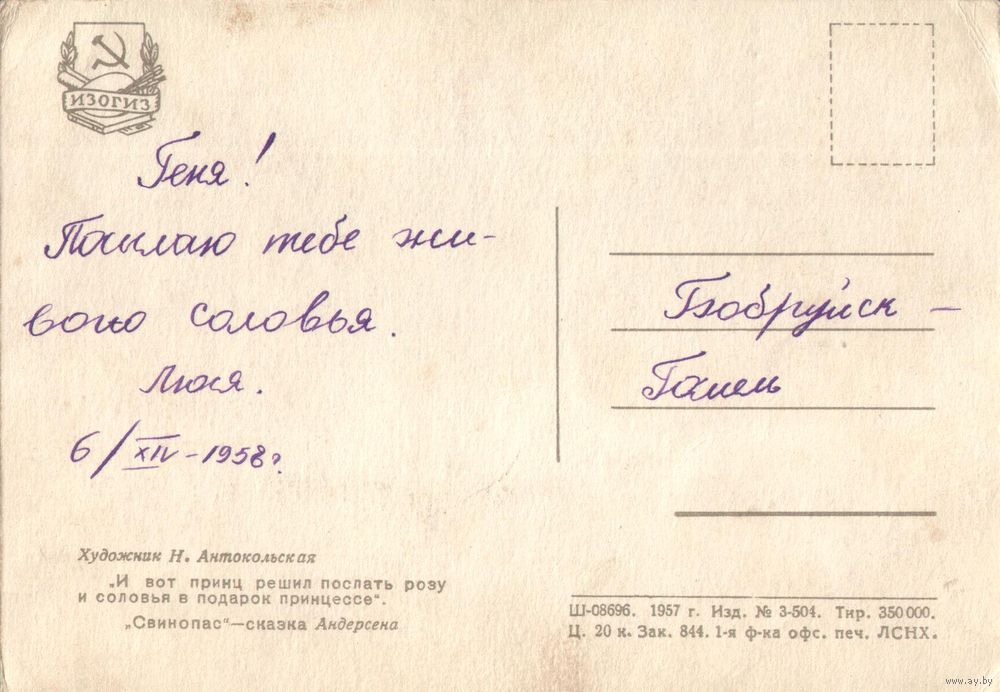 ИЗОГИЗ
Геня!
Посылаю тебе жи-
вого соловья.
Люся.
6/XIV-1958г.
Бобруйск –
Гомель
Художник Н. Антокольская
„И вот принц решил послать розу
и соловья в подарок принцессе“.
„Свинопас“—сказка Андерсена
Ш-08696. 1957 г. Изд. № 3-504. Тир. 350 000.
Ц. 20 к. Зак. 844. 1-я ф-ка офс. печ. ЛСНХ.
www.ay.by